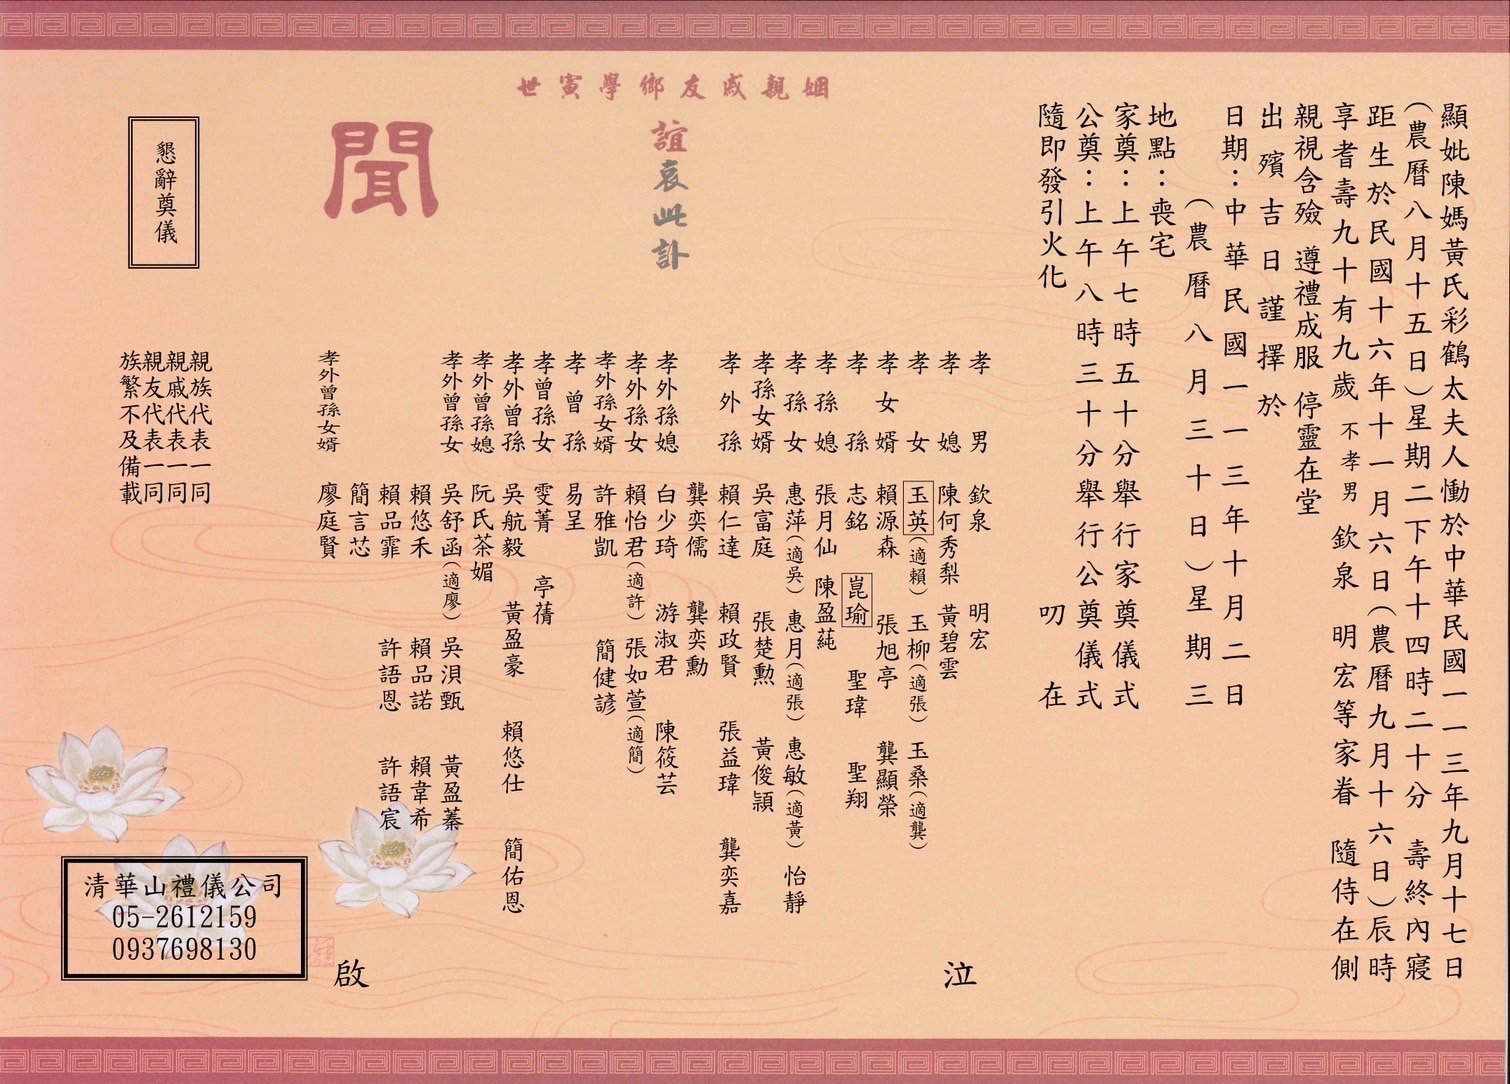 顯妣陳媽黃氏彩鶴太夫人慟於中華民國一一三年九月十七日
(農曆八月十五日)星期二下午十四時二十分　壽終內寢
距生於民國十六年十一月六日(農曆九月十六日)辰時
享耆壽九十有九歲　不孝男　欽泉　明宏等家眷　隨侍在側
親視含殮　遵禮成服　停靈在堂
出殯吉日謹擇於
日期：中華民國一一三年十月二日
(農曆八月三十日)星期三
地點：喪宅
家奠：上午七時五十分舉行家奠儀式
公奠：上午八時三十分舉行公奠儀式
隨即發引火化　叨在
姻親戚友鄉學寅世
誼哀此訃
聞
孝男　欽泉　明宏
孝媳　陳何秀梨　黃碧雲　泣
孝女　玉英(適賴)　玉柳(適張)　玉桑(適龔)
孝女婿　賴源森　張旭亭　龔顯榮
孝孫　志銘　崑瑜　聖瑋　聖翔
孝孫媳　張月仙　陳盈蒓
孝孫女　惠萍(適吳)　惠月(適張)　惠敏(適黃)　怡靜
孝孫女婿　吳富庭　張楚勲　黃俊頴
孝外孫　賴仁達　賴政賢　張益瑋　龔奕嘉
龔奕儒　龔奕勳
孝外孫媳　白少琦　游淑君　陳筱芸
孝外孫女　賴怡君(適許)　張如萱(適簡)
孝外孫女婿　許雅凱　簡健諺
孝曾孫　易呈
孝曾孫女　雯菁　亭蒨
孝外曾孫　吳航毅　黃盈豪　賴悠仕　簡佑恩
孝外曾孫媳　阮氏茶媚
孝外曾孫女　吳舒函(適廖)　吳浿甄　黃盈蓁
賴悠禾　賴品諾　賴韋希
賴品霏　許語恩　許語宸
簡言芯
孝外曾孫女婿　廖庭賢　啟
親族代表一同
親戚代表一同
親友代表一同
族繁不及備載
懇辭奠儀
清華山禮儀公司
05-2612159
0937698130